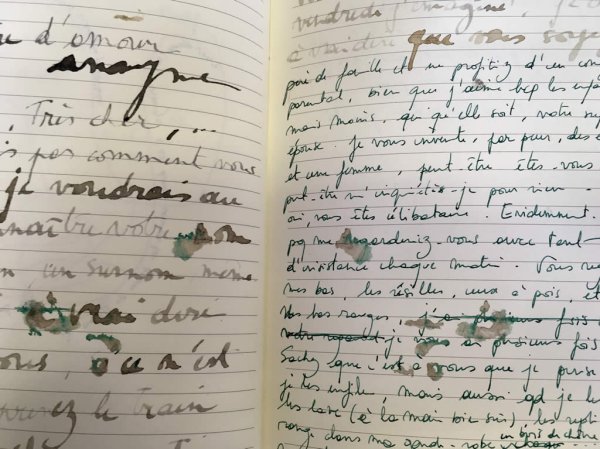 d'amour
anonyme
, Très cher, ...
pas comment vous
je voudrais au
naître votre nom
un surnom même
à vrai dire
vous, ce n'est
le train
vendredi j'imagine,
à vrai dire que vous soyez
père de famille et ne profitiez d'un con
parental, bien que j'aime bcp les enfa
mais moins, qui qu'elle soit, votre
épouse. Je vous invente, par peur, des e
et une femme, peut-être êtes-vous
peut-être m'inquiétè-je pour rien
oui, vous êtes célibataire. Evidemment.
me regarderiez-vous avec tant
d'insistance chaque matin. Vous
mes bas, les résilles, ceux à pois, et
bas rouges, j'ai plusieurs fois
je vous ai plusieurs fois
Sachez que c'est à vous que je pense
je les enfile, mais aussi qd je
les lave (à la main bien sûr), les
range dans ma garde-robe en bois de chêne